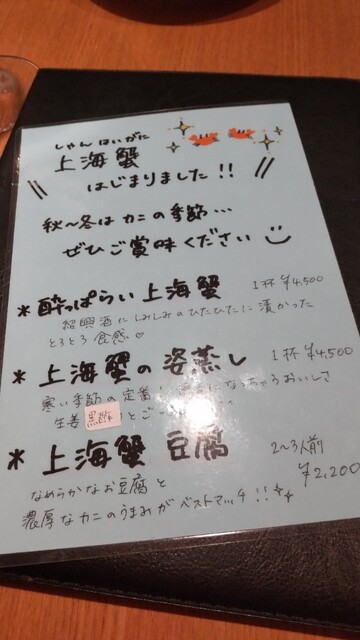 しゃんはいがに
上海蟹
はじまりました!!
秋〜冬はカニの季節…
ぜひご賞味ください
＊酔っぱらい上海蟹 1杯 ¥4,500
紹興酒にしみしみのひたひたに漬かった
とろとろ食感♡
＊上海蟹の姿蒸し 1杯 ¥4,500
寒い季節の定番 になっちゃうおいしさ
生姜 黒酢 とご
＊上海蟹 豆腐 2〜3人前
¥2,200
なめらかなお豆腐と
濃厚なカニのうまみがベストマッチ!!